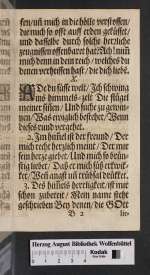 sen/uñ mich in die hölle verstossen/
die mich so offt auff erden geküsset/
und dasselbe durch solche hertzliche
neigungen offenbaret hat? Ach! mich
nicht denn in dein reich/ welches du
denen verheissen hast/ die dich liebẽ.
X.
ADe du süsse welt/ Ich schwing
ins himmels-zelt Die flügel
meiner sinnen/ Und suche zu gewin-
nen/ Was ewiglich bestehet/ Wenn
dieses rund vergehet.
2. Im himel ist der freund/ Der
mich recht hertzlich meint/ Der mir
sein hertze giebet/ Und mich so brün-
stig liebet/ Daß er mich süß erquicket/
Wenn angst uñ trübsal drücket.
3. Des himels herrligkeit/ ist mir
schon zubereit/ Mein name steht
geschrieben Bey denen/ die GOtt
B 2
lie-
Herzog August Bibliothek Wolfenbüttel
Kodak